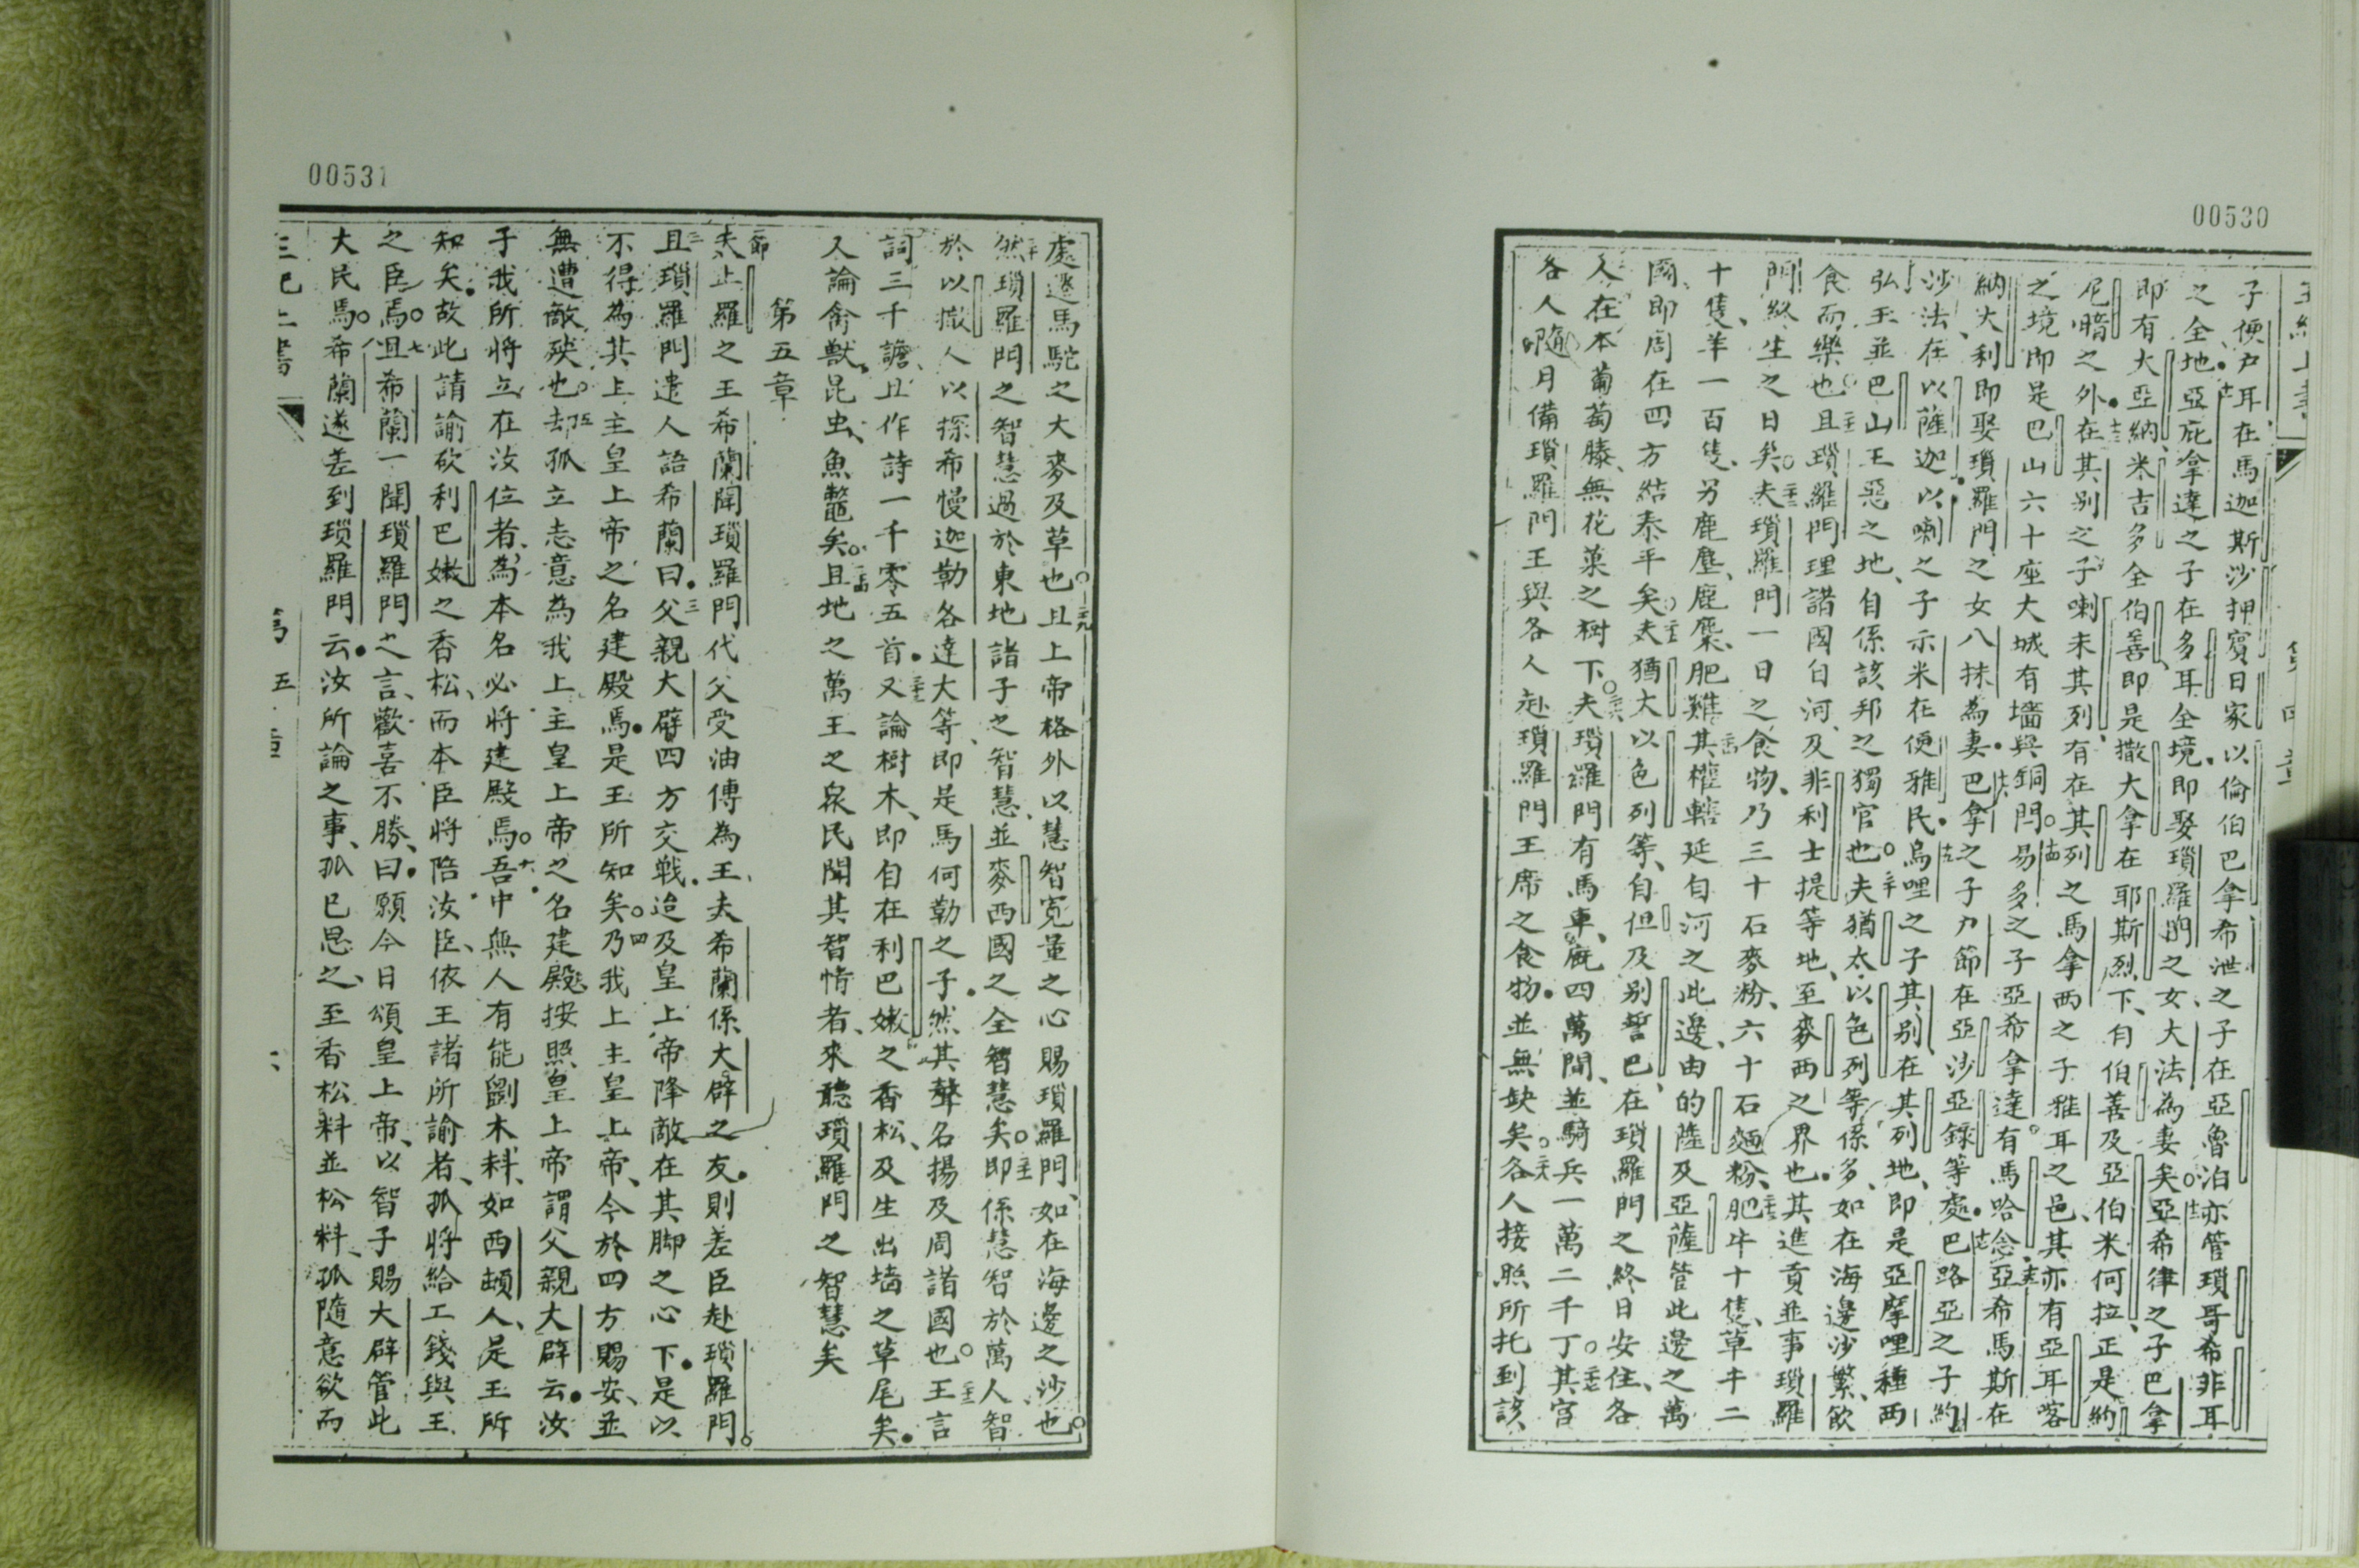 00530
子便户耳在馬迦斯沙押賓日家以倫伯巴拿希泄之子在亞魯泊亦管瑣哥希非耳
之全地亞庇拿達之子在多耳全境即娶瑣羅門之女大法為妻矣亞希律之子巴拿
即有大亞納米吉多全伯善即是撒大拿在耶斯烈下自伯善及亞伯米何拉正是約
尼暗之外在其别之子喇末其列有在其列之馬拿西之子雅耳之邑其亦有亞耳喀
之境即是巴山六十座大城有墻與銅閂易多之子亞希拿達有馬哈念亞希馬斯在
納大利即娶瑣羅門之女八抹為妻巴拿之子户節在亞沙亞錄等處巴路亞之子約
沙法在以薩迦以喇之子示米在便雅民烏哩之子其别在其列地即是亞摩哩種西
弘王並巴山王惡之地自係該邦之獨官也夫猶太以色列等係多如在海邊沙繁飲
食而樂也且瑣羅門理諸國自河及非利士提等地至麥西之界也其進貢並事瑣羅
門終生之日矣夫瑣羅門一日之食物乃三十石麥粉六十石麵粉肥牛十隻草牛二
十隻羊一百隻另鹿麈麃麋肥雞其權轄延自河之此邊由的薩及亞薩管此邊之萬
國即周在四方結泰平矣夫猶大以色列等自但及别誓巴在瑣羅門之終日安住各
人在本葡萄滕無花菓之樹下夫瑣羅門有馬車廐四萬間並騎兵一萬二千丁其宫
各人隨月備瑣羅門王與各人赴瑣羅門王席之食物並無缺矣各人接照所托到該
00531
處送馬駝之大麥及草也且上帝格外以慧智寬量之心賜瑣羅門如在海邊之沙也
然瑣羅門之智慧過於東地諸子之智慧並麥西國之全智慧矣即係慧智於萬人智
於以撒人以探希慢迦勒各達大等即是馬何勒之子然其聲名揚及周諸國也王言
詞三千譫且作詩一千零五首又論樹木即自在利巴嫩之香松及生出墻之草尾矣
又論禽獸昆虫魚鼈矣且地之萬王之衆民聞其智情者來聽瑣羅門之智慧矣
第五章
節夫止羅之王希蘭聞瑣羅門代父受油傅為王夫希蘭係大辟之友則差臣赴瑣羅門
且瑣羅門遣人語希蘭曰父親大辟四方交戰迨及皇上帝降敵在其脚之心下是以
不得為其上主皇上帝之名建殿焉是王所知矣乃我上主皇上帝今於四方賜安並
無遭敵殃也却孤立志意為我上主皇上帝之名建殿按照皇上帝謂父親大辟云汝
子我所將立在汝位者為本名必將建殿焉吾中無人有能劉木料如西頓人是王所
知矣故此請諭砍利巴嫩之香松而本臣將陪汝臣依王諸所諭者孤將給工錢與王
之臣焉且希蘭一聞瑣羅門之言歡喜不勝曰願今日頌皇上帝以智子賜大辟管此
大民焉希蘭遂差到瑣羅門云汝所論之事孤已思之至香松料並松料孤隨意欲而
第五章